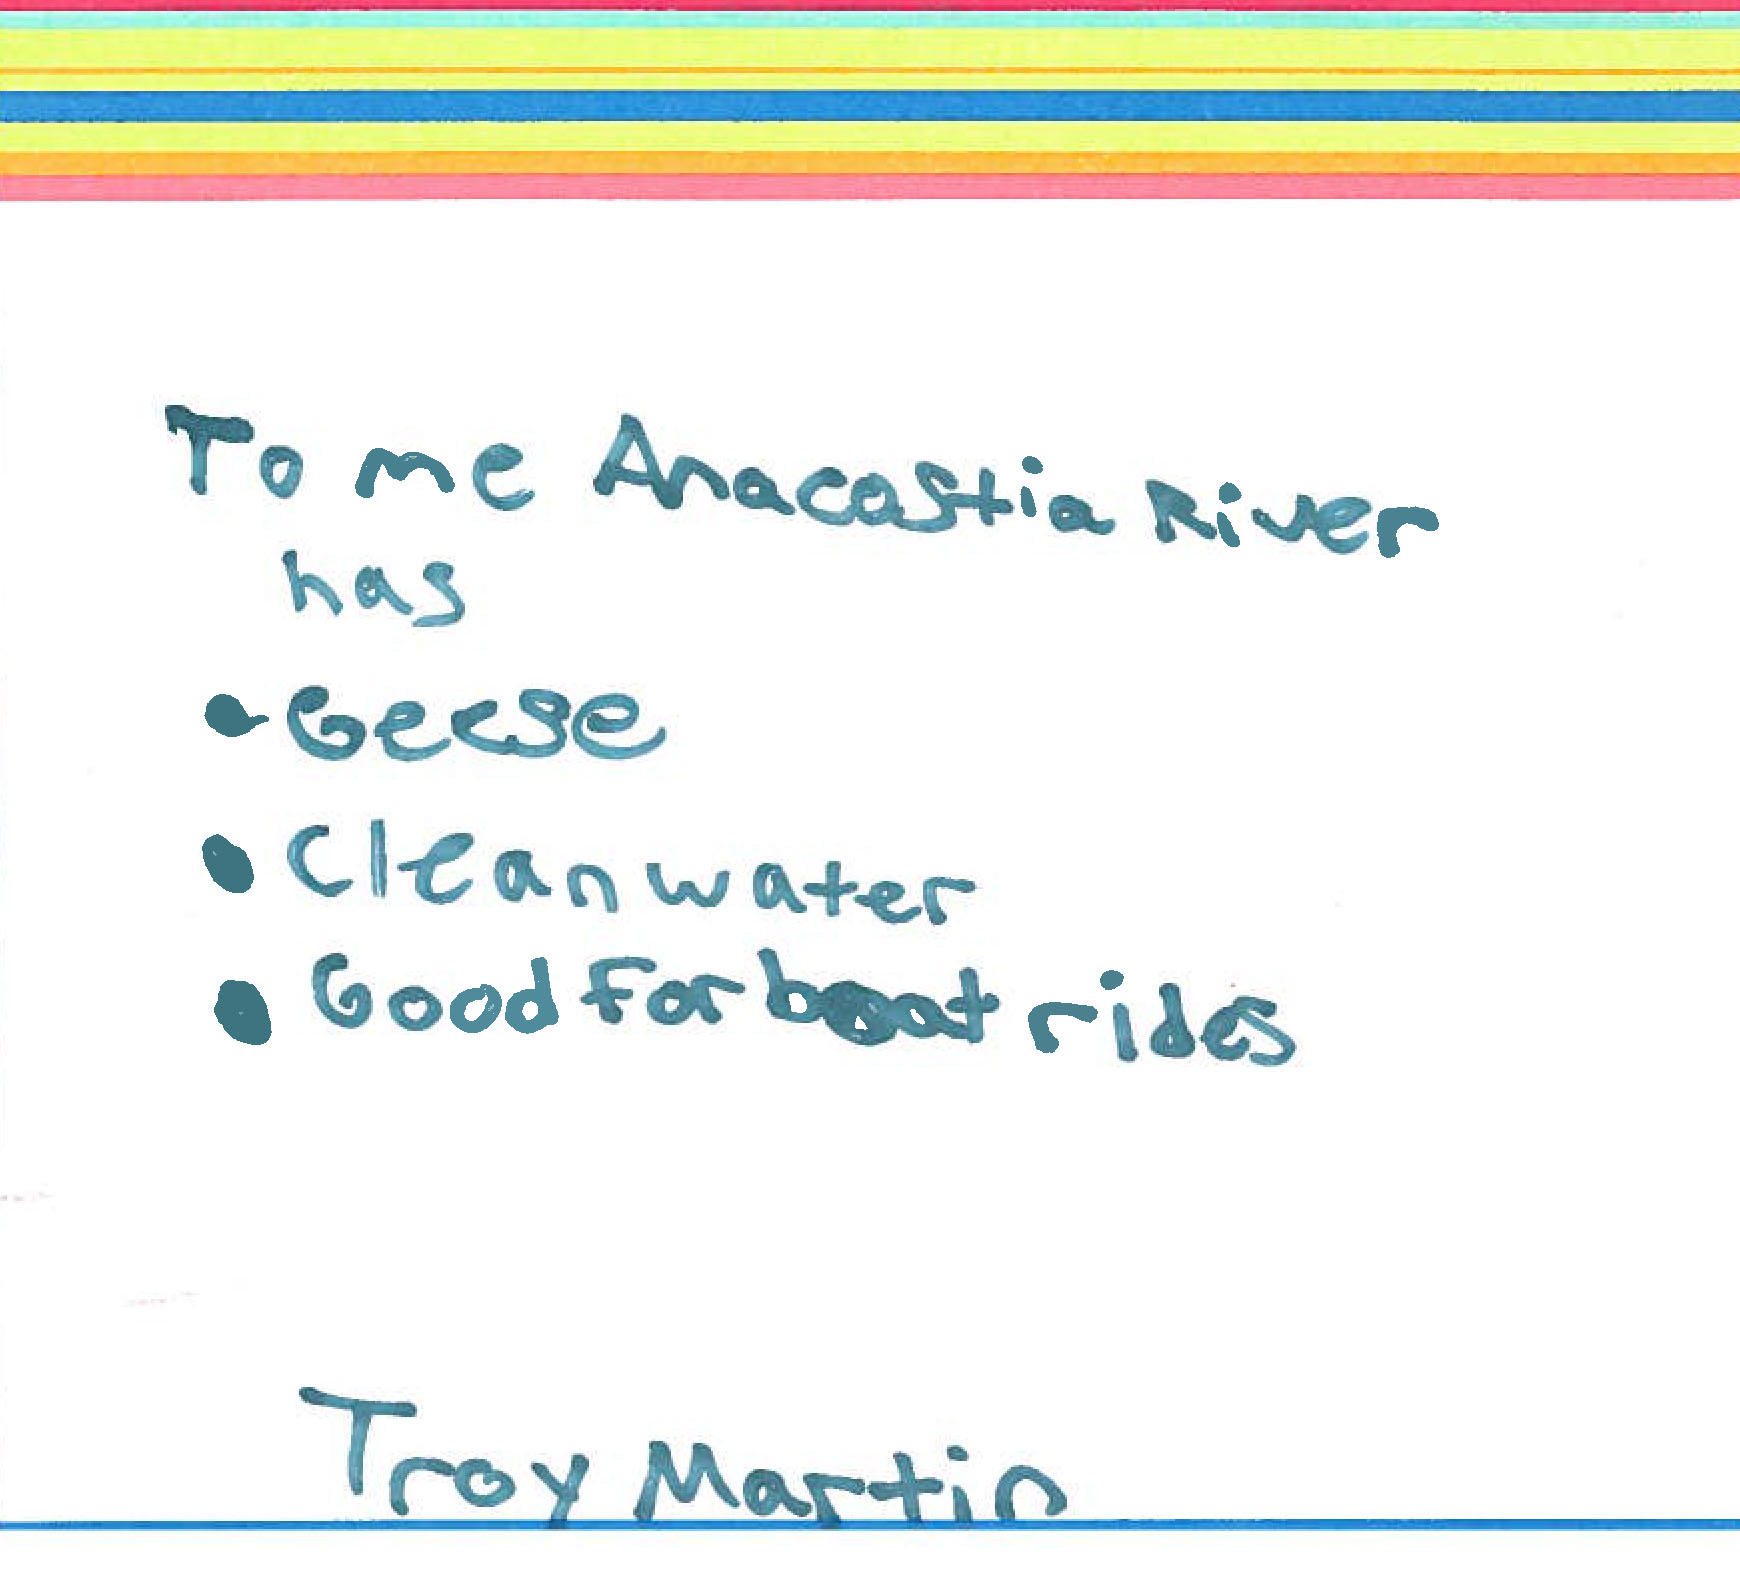 To me Anacastia River
has
• Geese
• Clean water
• Good for boat rides
Troy Martin